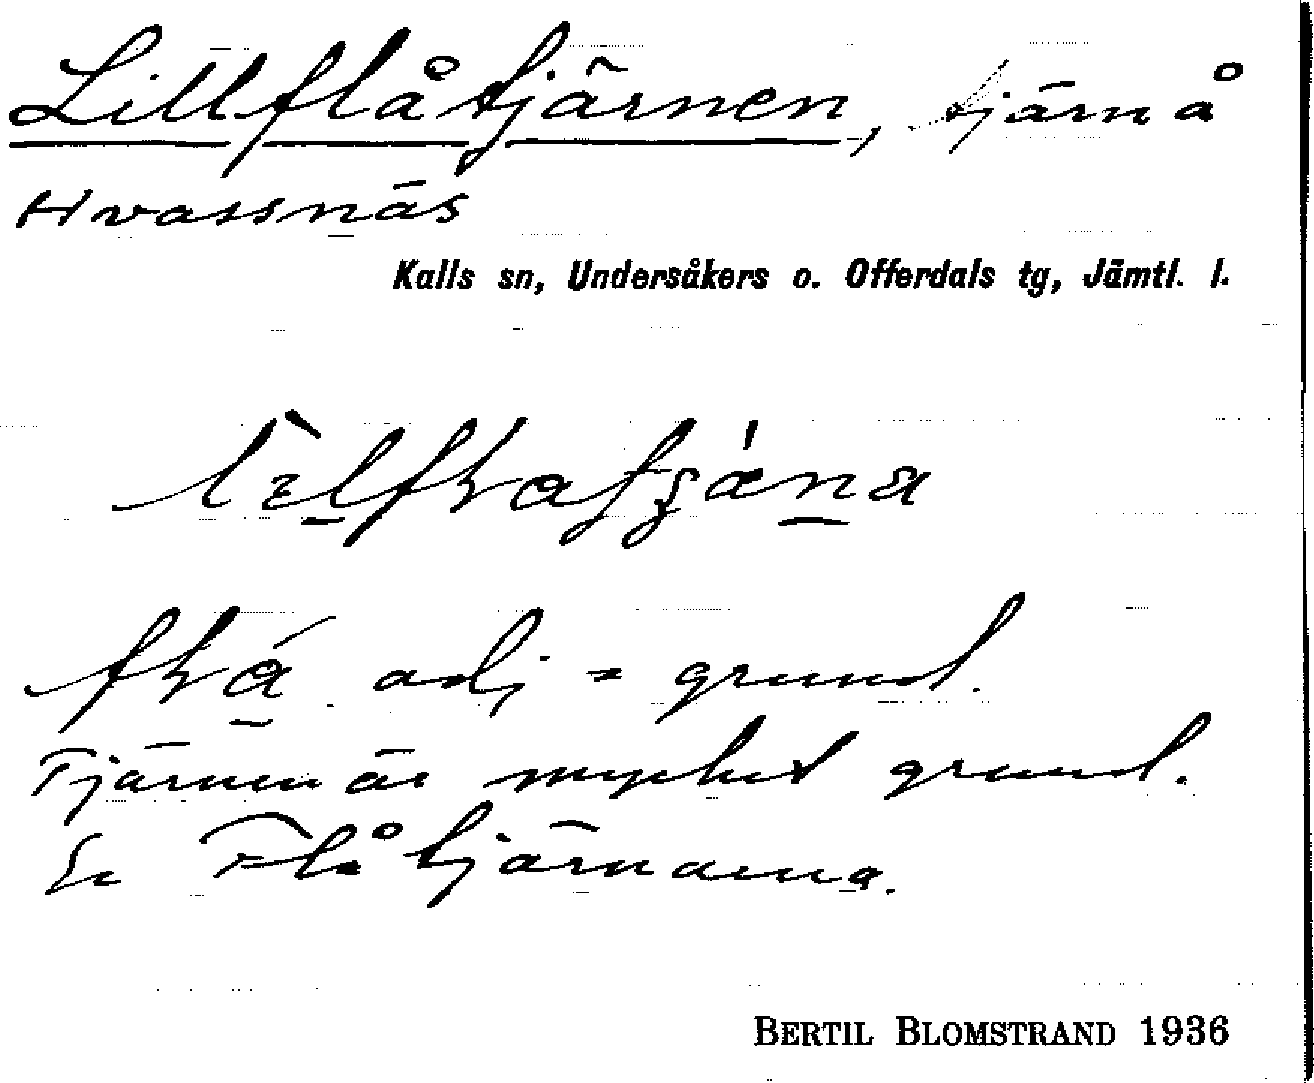 Lillflåtjärnen, tjärn å
Hvassnäs
Kalls sn, Undersåkers o. Offerdals tg, Jämtl. l.
adj = grund.
Tjärnen är mycket grund.
Se Flåtjärnarna.
BERTIL BLOMSTRAND 1936